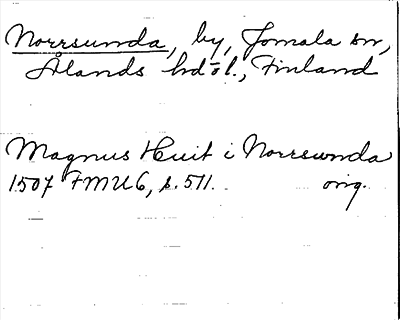 Norrsunda, by, Jomala sn,
Ålands hd o l., Finland
Magnus Huit i Norrswnda
1507 FMU 6, s. 511. orig.